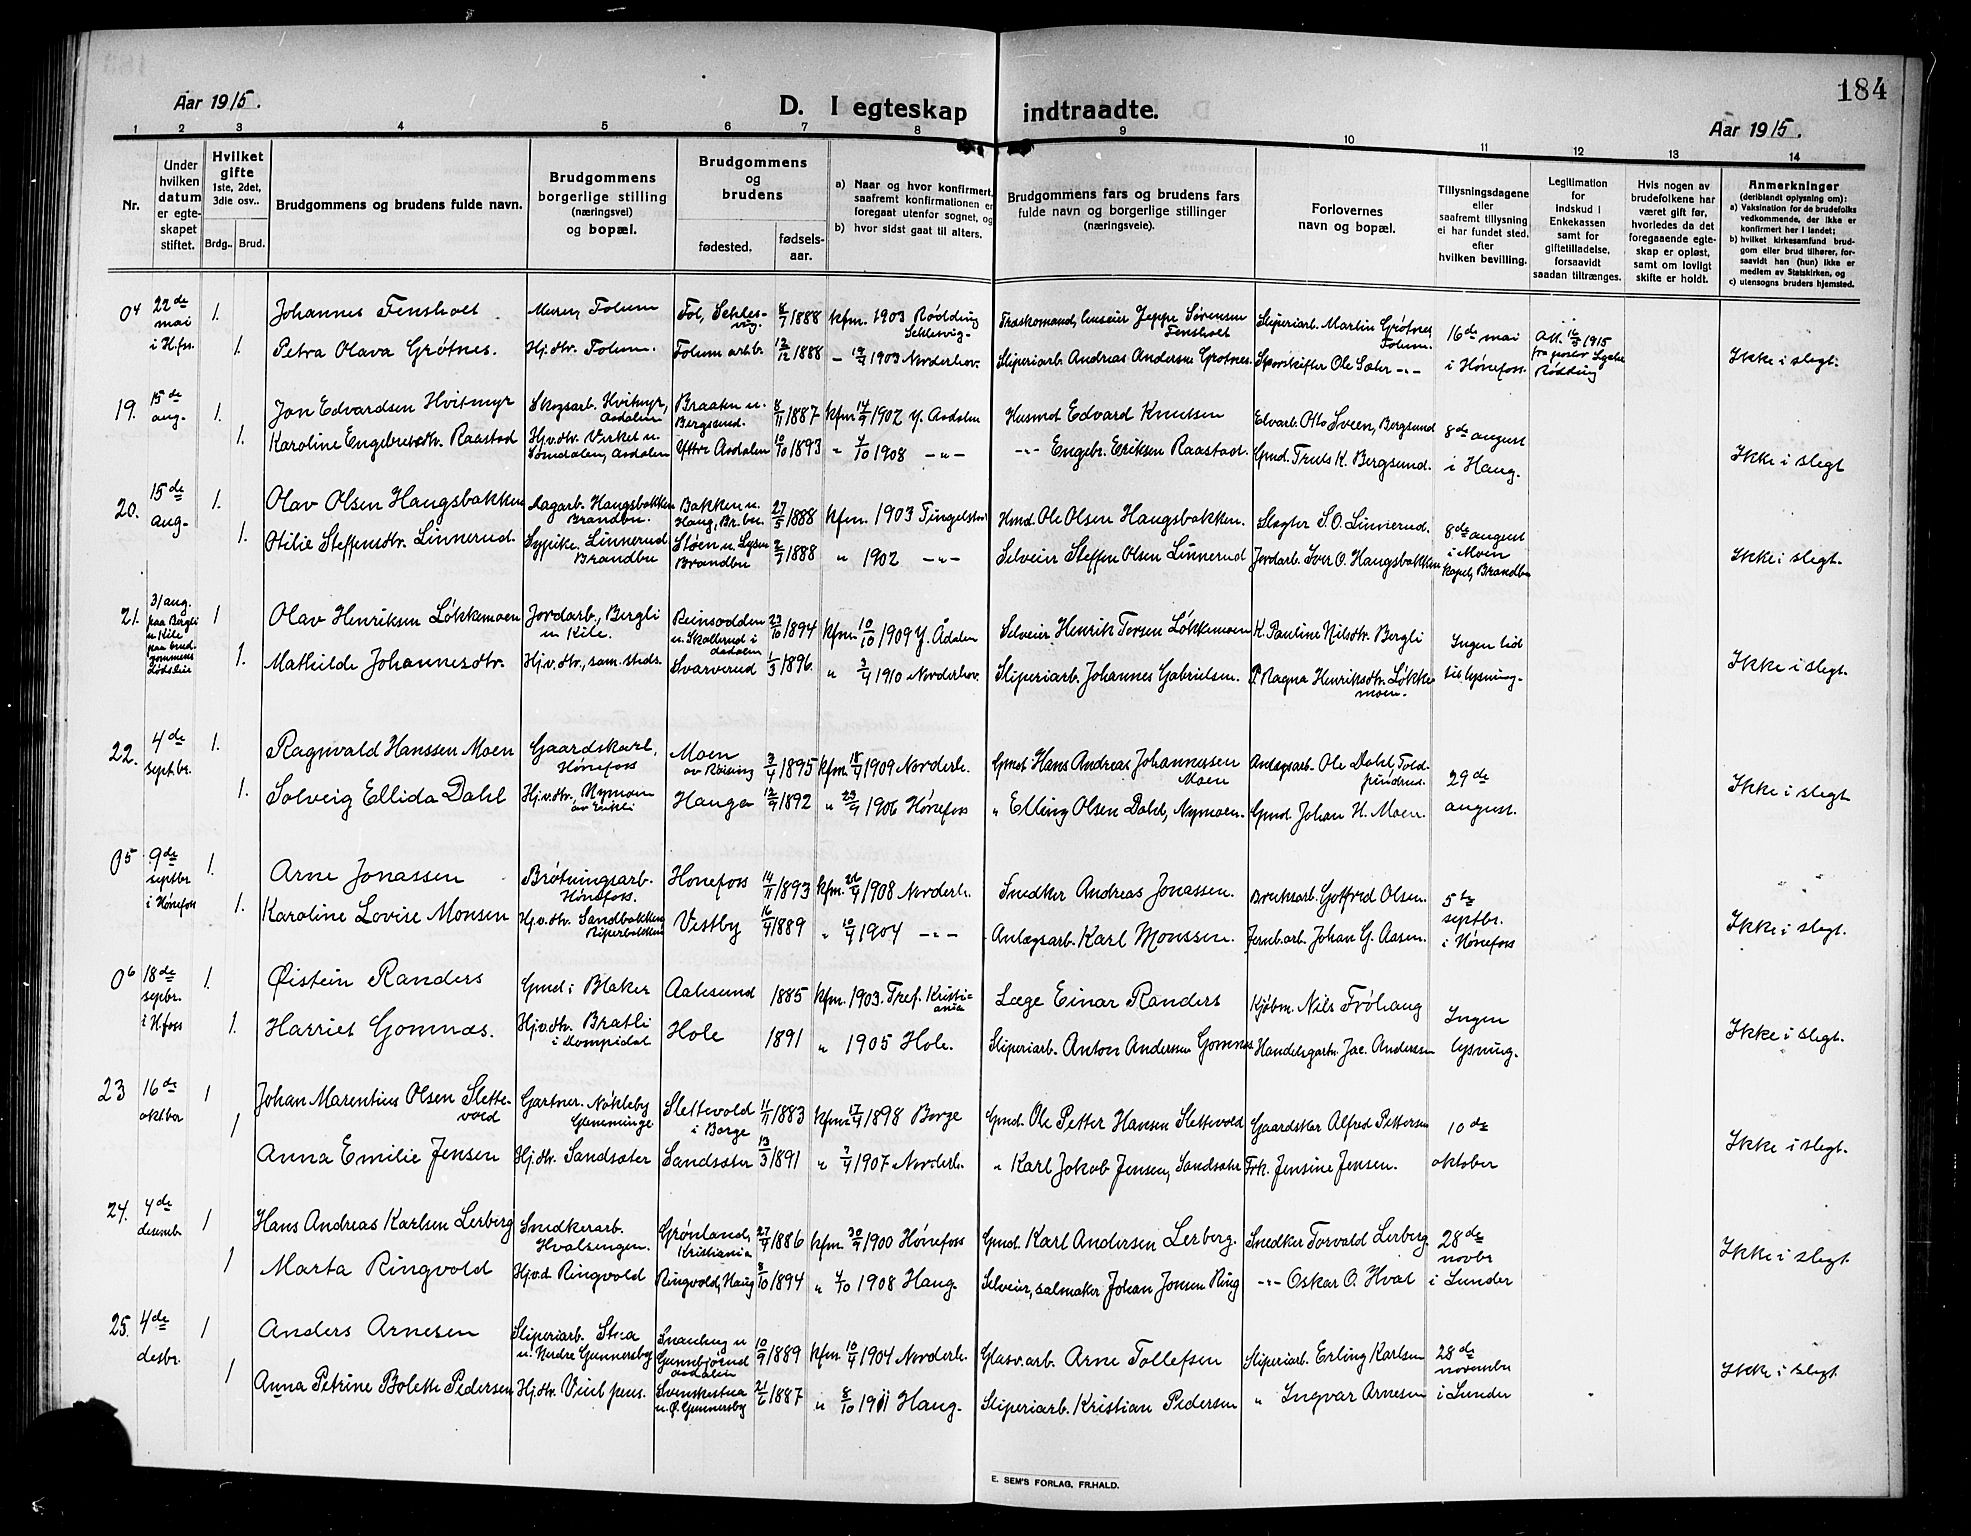 184
Aar 1915.
D. I egteskap indtraadte.
Aar 1915.
1 2 3 4 5 6 7 8 9 10 11 12 13 14
Nr.
Under hvilken datum er egteskapet stiftet.
Hvilket gifte 1ste, 2det, 3die osv..
Brdg.. Brud.
Brudgommens og brudens fulde navn.
Brudgommens borgerlige stilling (næringsvei) og bopæl.
Brudgommens og brudens
fødested. fødselsaar.
a) Naar og hvor konfirmert, saafremt konfirmationen er foregaat utenfor sognet, og
b) hvor sidst gaat til alters.
Brudgommens fars og brudens fars fulde navn og borgerlige stillinger (næringsveie).
Forlovernes navn og bopæl.
Tillysningsdagene eller saafremt tillysning ei har fundet sted, efter hvilken bevilling.
Legitimation for Indskud i Enkekassen samt for giftetilladelse, forsaavidt saadan tiltrænges.
Hvis nogen av brudefolkene har været gift før, hvorledes da det foregaaende egteskap er opløst, samt om lovligt skifte er holdt.
Anmerkninger (deriblandt oplysning om):
a) Vaksination for de brudefolks vedkommende, der ikke er konfirmert her i landet;
b) hvilket kirkesamfund brudgom eller brud tilhører, forsaavidt han (hun) ikke er medlem av Statskirken, og
c) utensogns bruders hjemsted.
04 22de mai i H.fss. 1. Johannes Fensholt. Folum Fol, Schlesvig. 8/7 1888 kfm. 1903 Rødding Schlesvig Jeppe Sørensen Fensholt Sliperiarb. Martin Grøtnes Folum. 16de mai 1915
1. Petra Olava Grøtnes. Hj. dtr. Folum. Folum 12/12 1888 1903 Norderhov. Sliperiarb. Andreas Andersen Grøtnes. Ole Sæter i Hønefoss. Rødding Ikke i slegt.
19. 15de aug. 1. Jon Edvardsen Hvitmyr Skogsarb. Hvitmyr, Aadalen Braaten u. Bergsund. 8/11 1887 kfm 14/9 1902 Y. Aadalen Husmd. Edvard Knutsen Otto Sveen, Bergsund 8de august
1. Karoline Engebretsdtr. Raastad Hj.v.dtr. Viker u. Aadalen Yttre Aadalen 10/10 1893 " 4/10 1908 -"- -"- Engebr. Eriksen Raastad. Gmd. Truls K. Bergsund. i Haug. Ikke i slegt
20. 15de aug. 1. Olav Olsen Haugsbakken Haugsbakken Brandbu. Bakken u. Haug, Br.bu. 27/5 1888 kfm. 1903 Tingelstad Hmd. Ole Olsen Haugsbakken. Slagter S. O. Linnerud. 8de august
1. Otilie Steffensdtr. Linnerud. Sypike. Linnerud Brandbu Støen u. Lysen Brandbu 2/7 1888 " 1902 -"- Selveier Steffen Olsen Linnerud Jordarb. Iver O. Haugsbakken i Moen kapel, Brandbu Ikke i slegt.
21. 31/aug. paa Bergli u. Kile paa brudgommens 1 Olav Henriksen Løkkemoen Jordarb., Bergli u. Kile. u. Skollerud i Aadalen 23/10 1894 kfm. 10/10 1909 Y. Ådalen Selveier Henrik Torsen Løkkemoen K. Pauline Nilsdtr. Bergli Ingen tid
1. Mathilde Johannesdtr. Hj.v.dtr., sam. steds. Svarverud 1/3 1896 " 3/4 1910 Norderhov. Sliperiarb. Johannes Gabrielsen. P. Ragna Henriksdtr. Løkkemoen. til lysning. Ikke i slegt.
22. 4de septbr. 1. Ragnvald Hanssen Moen Gaardskarl, Hønefoss Moen av Røising 3/4 1895 kfm. 18/4 1909 Norderh. Gmd. Hans Andreas Johannessen Moen Anlægsarb. Ole Dahl, 29de
1. Solveig Ellida Dahl Hj.v.dtr., Nymoen Hauga 12/9 1892 " 23/9 1906 Hønefoss " Elling Olsen Dahl, Nymoen. Gmd. Johan H. Moen. august. Ikke i slegt
05 9de septbr i Hønefoss 1. Arne Jonassen Brøtningsarb. Hønefoss. Hønefoss 14/11 1893 kfm. 26/4 1908 Norderh. Snedker Andreas Jonassen. Bruksarb. Gotfred Olsen. 5te septbr.
1. Karoline Lovise Monsen Hj.v.dtr. Sandbakken Vestby 16/4 1889 " 10/4 1904 -"- Anlægsarb. Karl Monssen. Jernb.arb. Johan G. Aasen. i Hønefoss Ikke i slegt.
06 18de sepbr. i H.foss 1. Øistein Randers Gmd. i Blaker Aalesund 1885 kfm. 1903. Tref. Kristiania Læge Einar Randers Kjøbm. Nils Frøhaug Ingen
1. Harriet Gomnæs. Hj.v.dtr. Bratli Hole 1891 " 1905 Hole. Sliperiarb. Anton Andersen Gomnæs Handelsgartn. Jac. Andersen lysning. Ikke i slegt.
23 16de oktbr 1 Johan Marentius Olsen Slettevold Gartner. Nøkleby Glemminge Slettevold i Borge 11/11 1883 kfm. 17/4 1898 Borge Gmd. Ole Petter Hansen Slettevold Gaardskar Alfred Pettersen 10de
1 Anna Emilie Jensen Hj.dtr. Sandsæter Sandsæter 13/3 1891 " 7/4 1907 Norderh. " Karl Jakob Jensen, Sandsæter Frk. Jensine Jensen. oktober Ikke i slegt.
24. 4de desembr 1 Hans Andreas Karlsen Lerberg Snedkerarb. Hvalsengen. Grønland, Kristiania 27/9 1886 kfm. 30/9 1900 Hønefoss Gmd. Karl Andersen Lerberg. Snedker Torvald Lerberg. 28de novbr
1 Marta Ringvold Hj.v.d Ringvold Ringvold, Haug 8/10 1894 " 4/10 1908 Haug. Selveier, salmaker Johan Jonsen Ring -"- Oskar O. Hval i Lunder Ikke i slegt.
25. 4de desbr. 1 Anders Arnesen Sliperiarb. Stua u. Nerdre Gunnersby Gunnbjørud Aadalen 10/9 1889 kfm. 10/4 1904 Norderh. Glasv.arb. Arne Tollefsen Sliperiarb. Erling Karlsen 28de november
1 Anna Petrine Bolette Pedersen Hj.dtr. Svenskestua u. Ø. Gunnersby 21/6 1887 " 8/10 1911 Haug. Sliperiarb. Kristian Pedersen " Ingvar Arnesen i Lunder Ikke i slegt.
E. SEM'S FORLAG, FR.HALD.